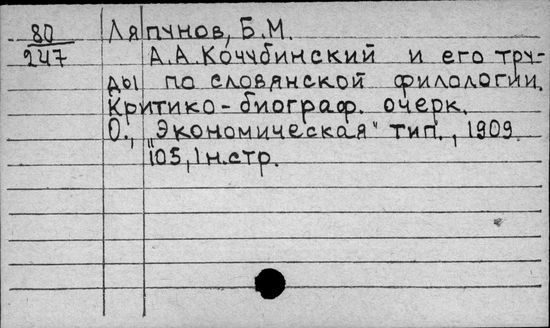 80
247
Ляпунов, Б.М.
А.А.Кочубинский и его тру-
ды по словянской филологии.
Критико-биограф. очерк.
О., "Экономическая" тип., 1909.
105, 1 н.стр.